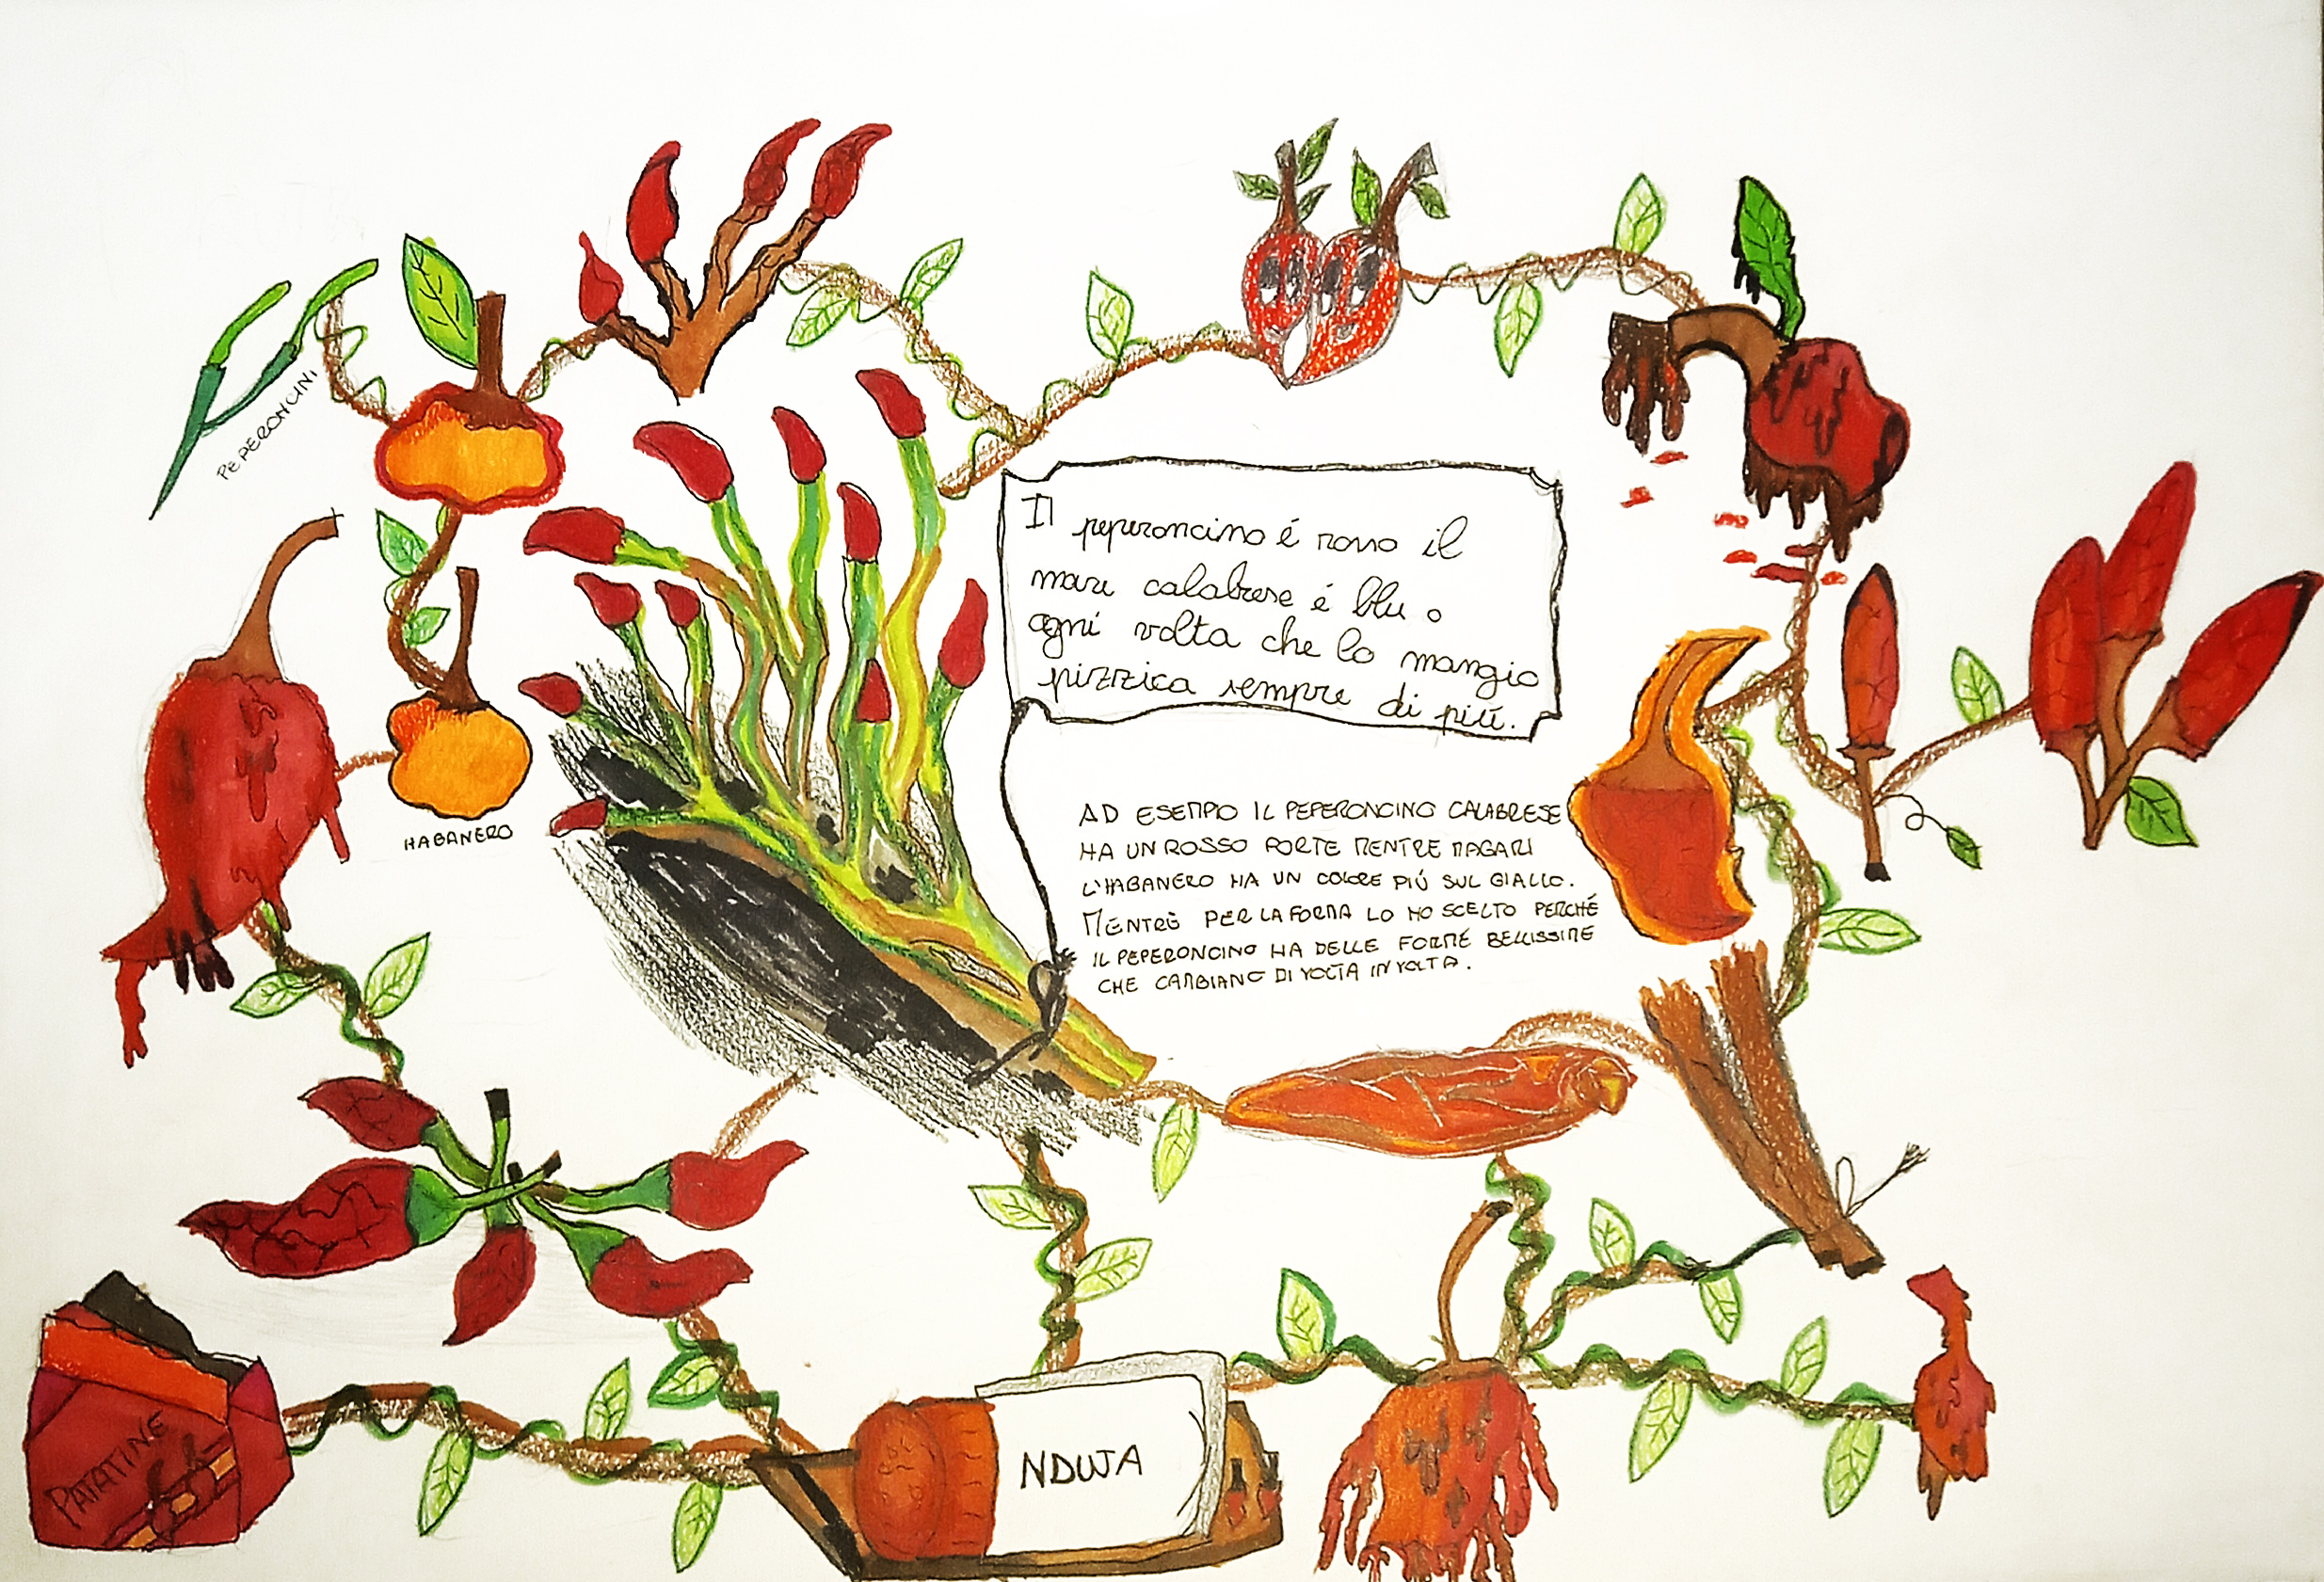 PEPERONCINI
Il peperoncino é rosso il
mare calabrese é blu o
ogni volta che lo mangio
pizzica sempre di piú.
HABANERO
AD ESEMPIO IL PEPERONCINO CALABRESE
HA UN ROSSO FORTE MENTRE MAGARI
L'HABANERO HA UN COLORE PIÚ SUL GIALLO.
MENTRE PER LA FORMA LO HO SCELTO PERCHÉ
IL PEPERONCINO HA DELLE FORME BELLISSIME
CHE CAMBIANO DI VOLTA IN VOLTA.
PATATINE
NDUJA